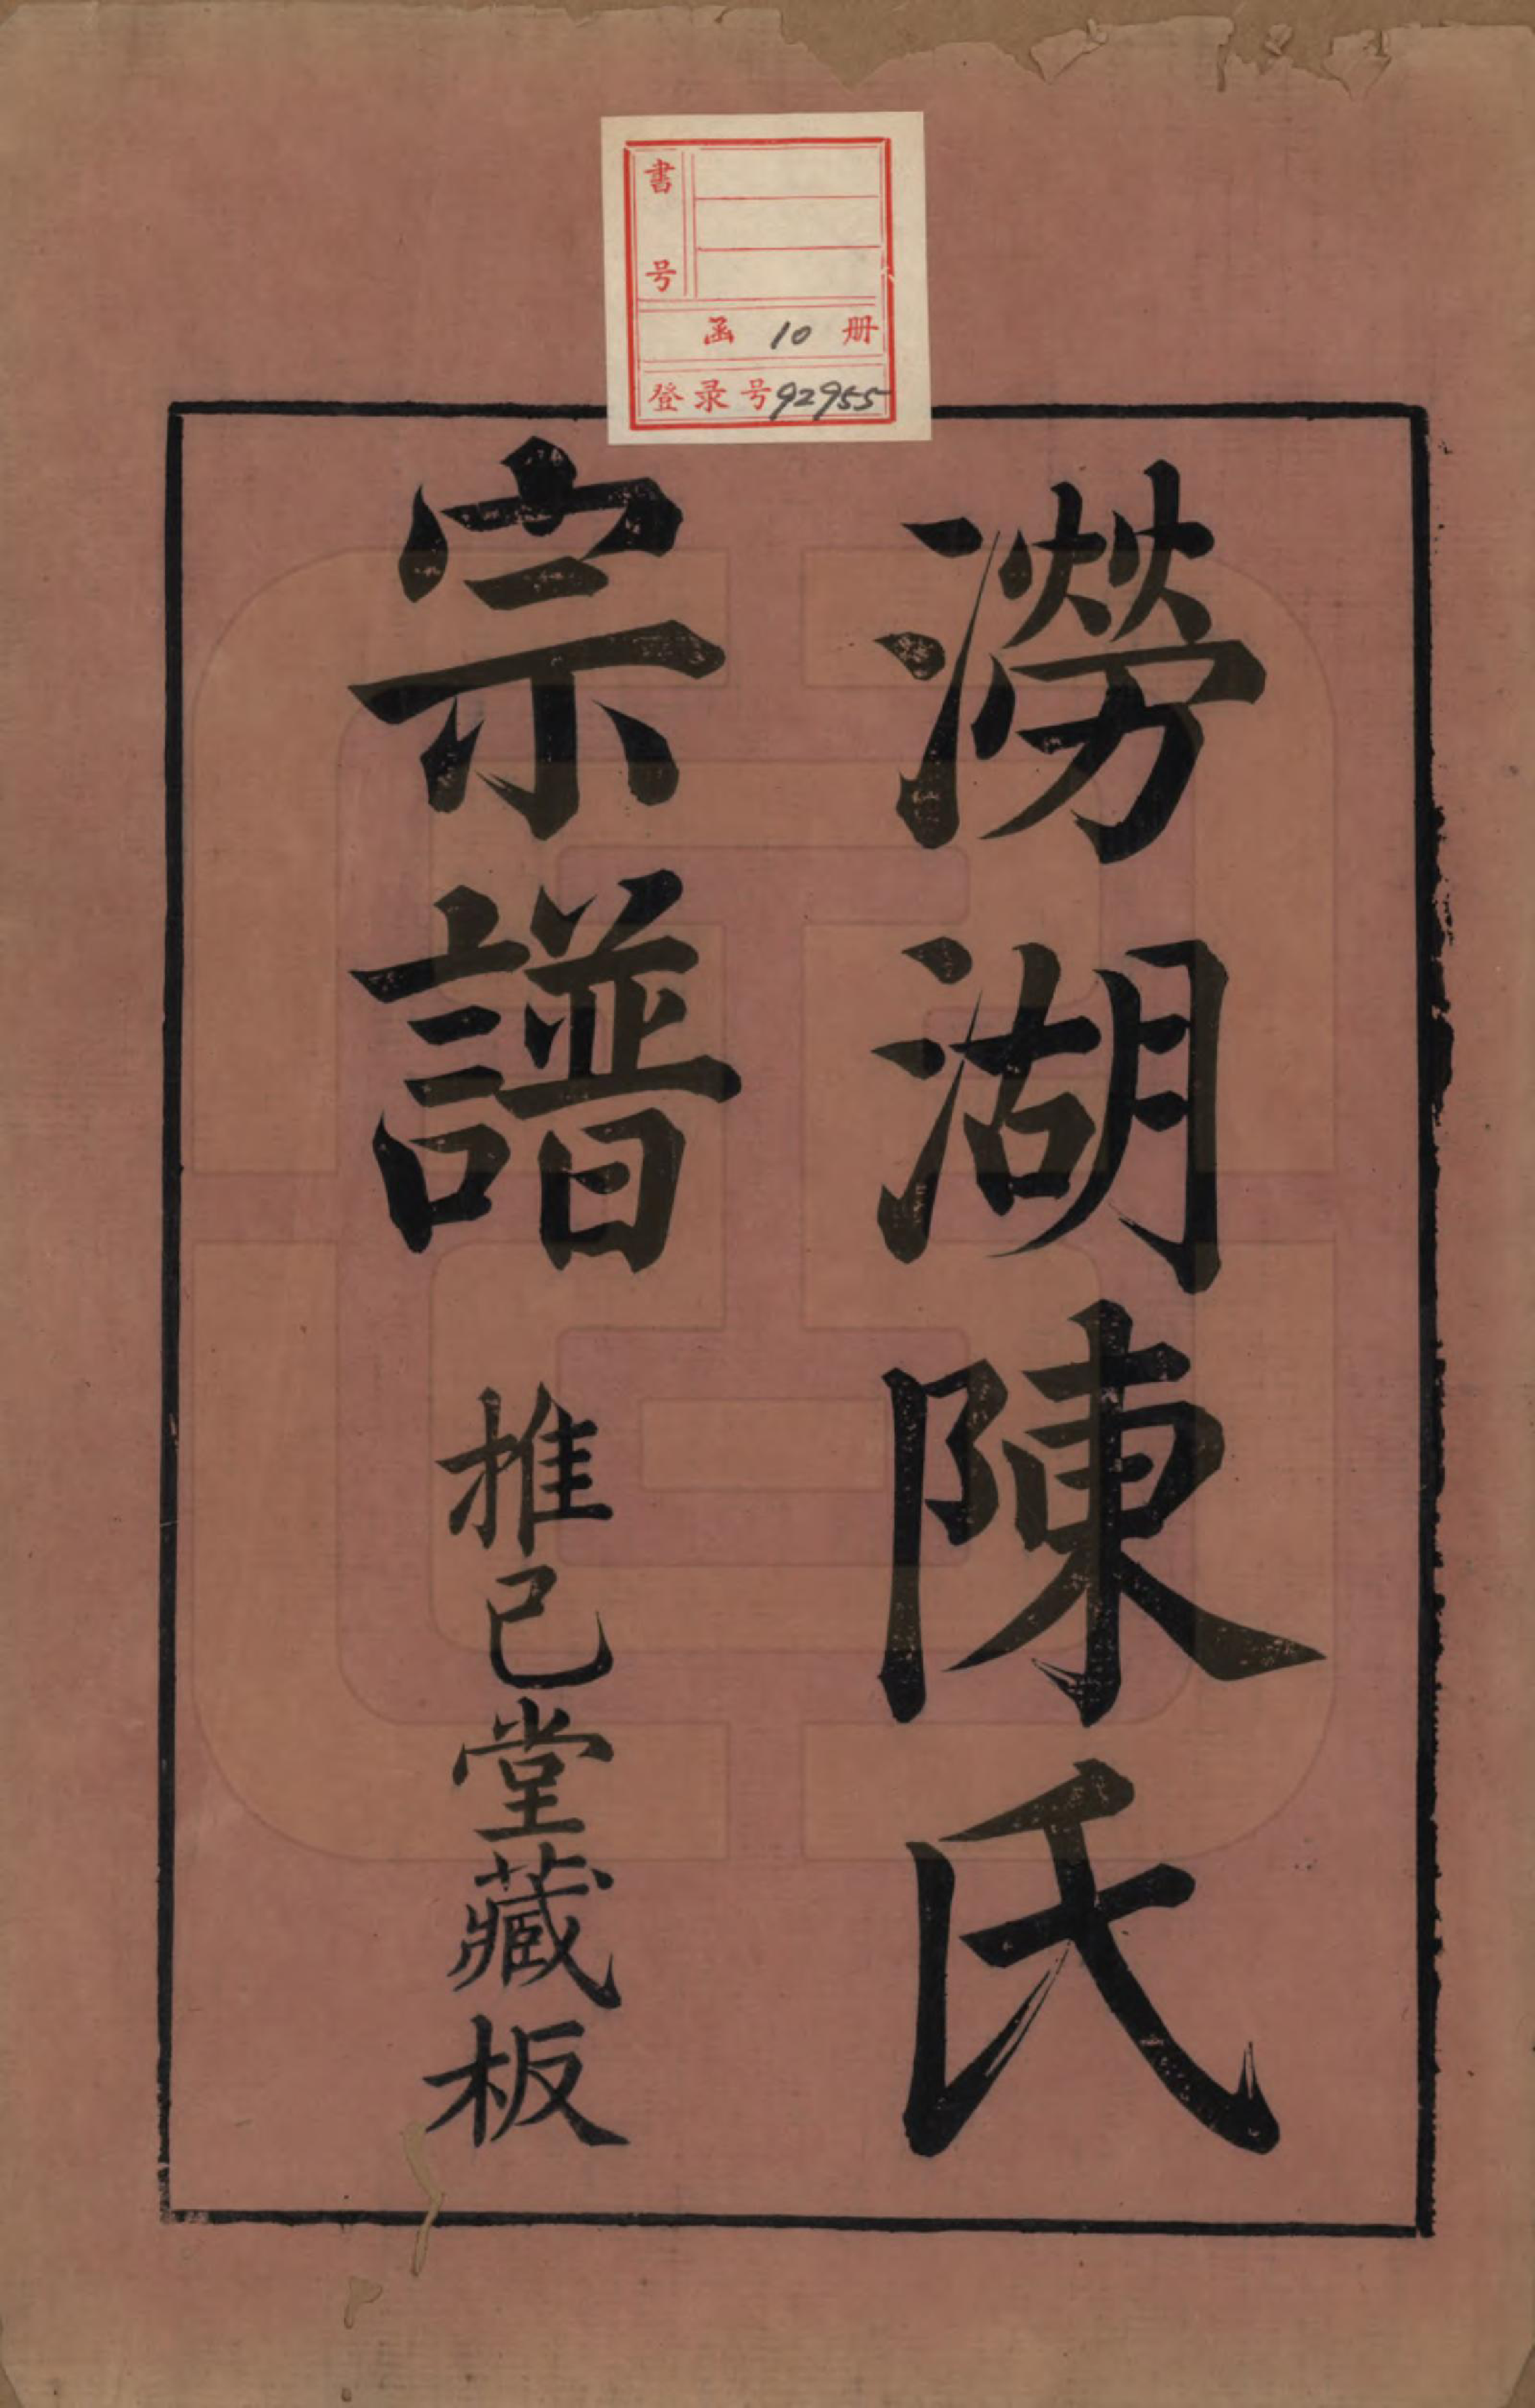 書号
函 10 册
登录号92955
澇湖陳氏
宗譜
推己堂藏板